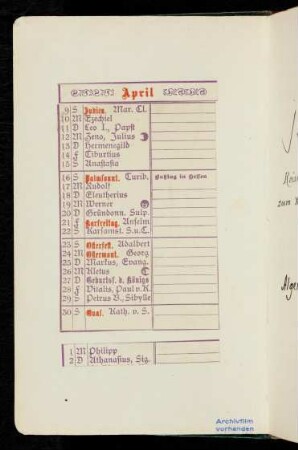 April
9 S Judica. Mar. Cl.
10 M Ezechiel
11 D Leo I., Papst
12 M Zeno, Julius
13 D Hermenegild
14 F Tiburtius
15 S Anastasia
16 S Palmsonnt. Turib.
17 M Rudolf
18 D Eleutherius
19 M Werner
20 D Gründonn. Sulp.
21 F Karfreitag. Anselm
22 S Karsamst. S.u.C.
23 S Osterfest. Adalbert
24 M Ostermont. Georg
25 D Markus, Evang.
26 M Kletus
27 D Geburtsf. d. Königs
28 F Vitalis, Paul v.K.
29 S Petrus M., Sibylle
30 S Quas. Kath. v. S.
1 M Philipp
2 D Athanasius, Sig.
zum
Archivfilm
vorhanden